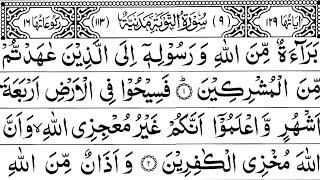 اٰیَاتُهَا ۱۲۹ (۹) سُوْرَةُ التَّوْبَةِ مَدَنِیَّةٌ (۱۱۳) رُكُوْعَاتُهَا ۱۶
بَرَآءَةٌ مِّنَ اللّٰهِ وَرَسُوْلِهٖۤ اِلَى الَّذِیْنَ عٰهَدْتُّمْ
مِّنَ الْمُشْرِكِیْنَ ۱ فَسِیْحُوْا فِی الْاَرْضِ اَرْبَعَةَ
اَشْهُرٍ وَّاعْلَمُوْۤا اَنَّكُمْ غَیْرُ مُعْجِزِی اللّٰهِ ۙ وَاَنَّ
اللّٰهَ مُخْزِی الْكٰفِرِیْنَ ۲ وَاَذَانٌ مِّنَ اللّٰهِ